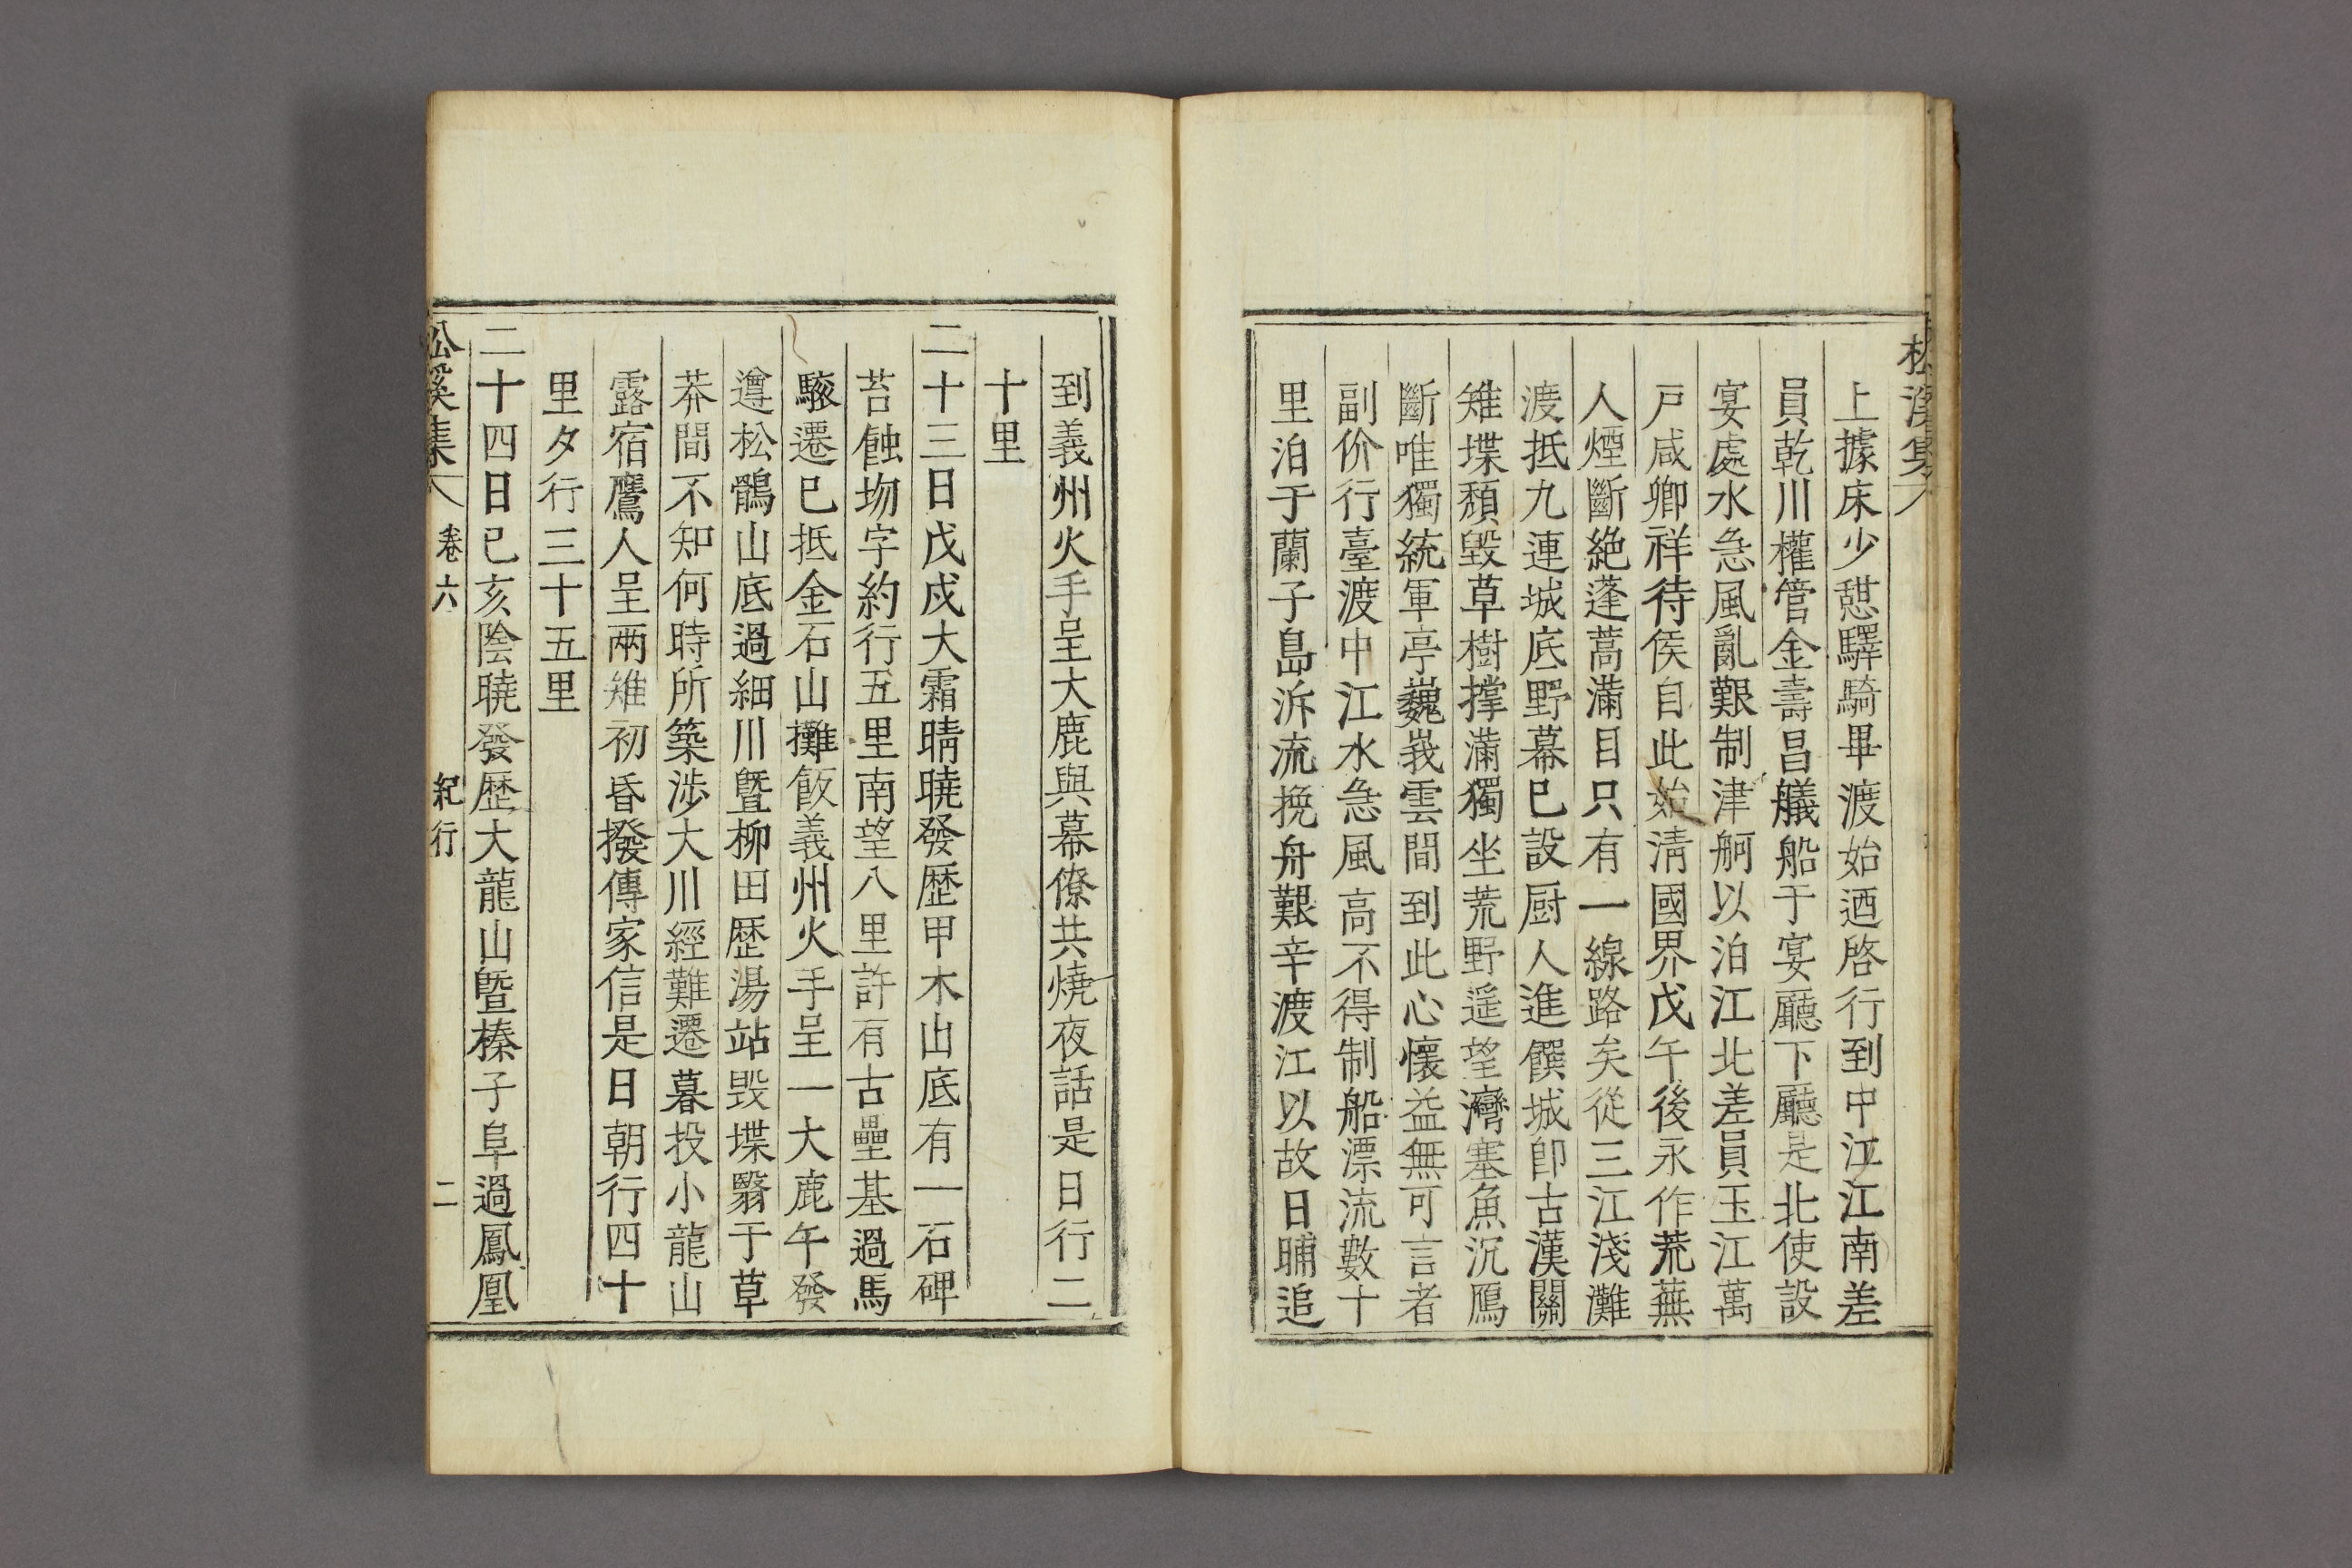 松溪集
上據床少憩驛騎畢渡始迺啓行到中江江南差
員乾川權管金壽昌艤船于宴廳下廳是北使設
宴處水急風亂艱制津舸以泊江北差員玉江萬
戶咸卿祥待侯自此始淸國界戊午後永作荒蕪
人煙斷絶蓬蒿滿目只有一線路矣從三江淺灘
渡抵九連城底野幕已設厨人進饌城卽古漢關
雉堞頹毀草樹撑滿獨坐荒野遥望灣塞魚沉鴈
斷唯獨統軍亭巍峩雲間到此心懷益無可言者
副价行臺渡中江水急風高不得制船漂流數十
里泊于蘭子島泝流挽舟艱辛渡江以故日晡追
到義州火手呈大鹿與幕僚共燒夜話是日行二
十里
二十三日戊戌大霜晴曉發歷甲木山底有一石碑
苔蝕刎字約行五里南望八里許有古壘基過馬
騣遷已抵金石山攤飯義州火手呈一大鹿午發
遵松鶻山底過細川曁柳田歷湯站毀堞翳于草
莽間不知何時所築涉大川經難遷暮投小龍山
露宿鷹人呈兩雉初昏撥傳家信是日朝行四十
里夕行三十五里
二十四日己亥陰曉發歷大龍山曁榛子阜過鳳凰
松溪集 卷六 紀行 二